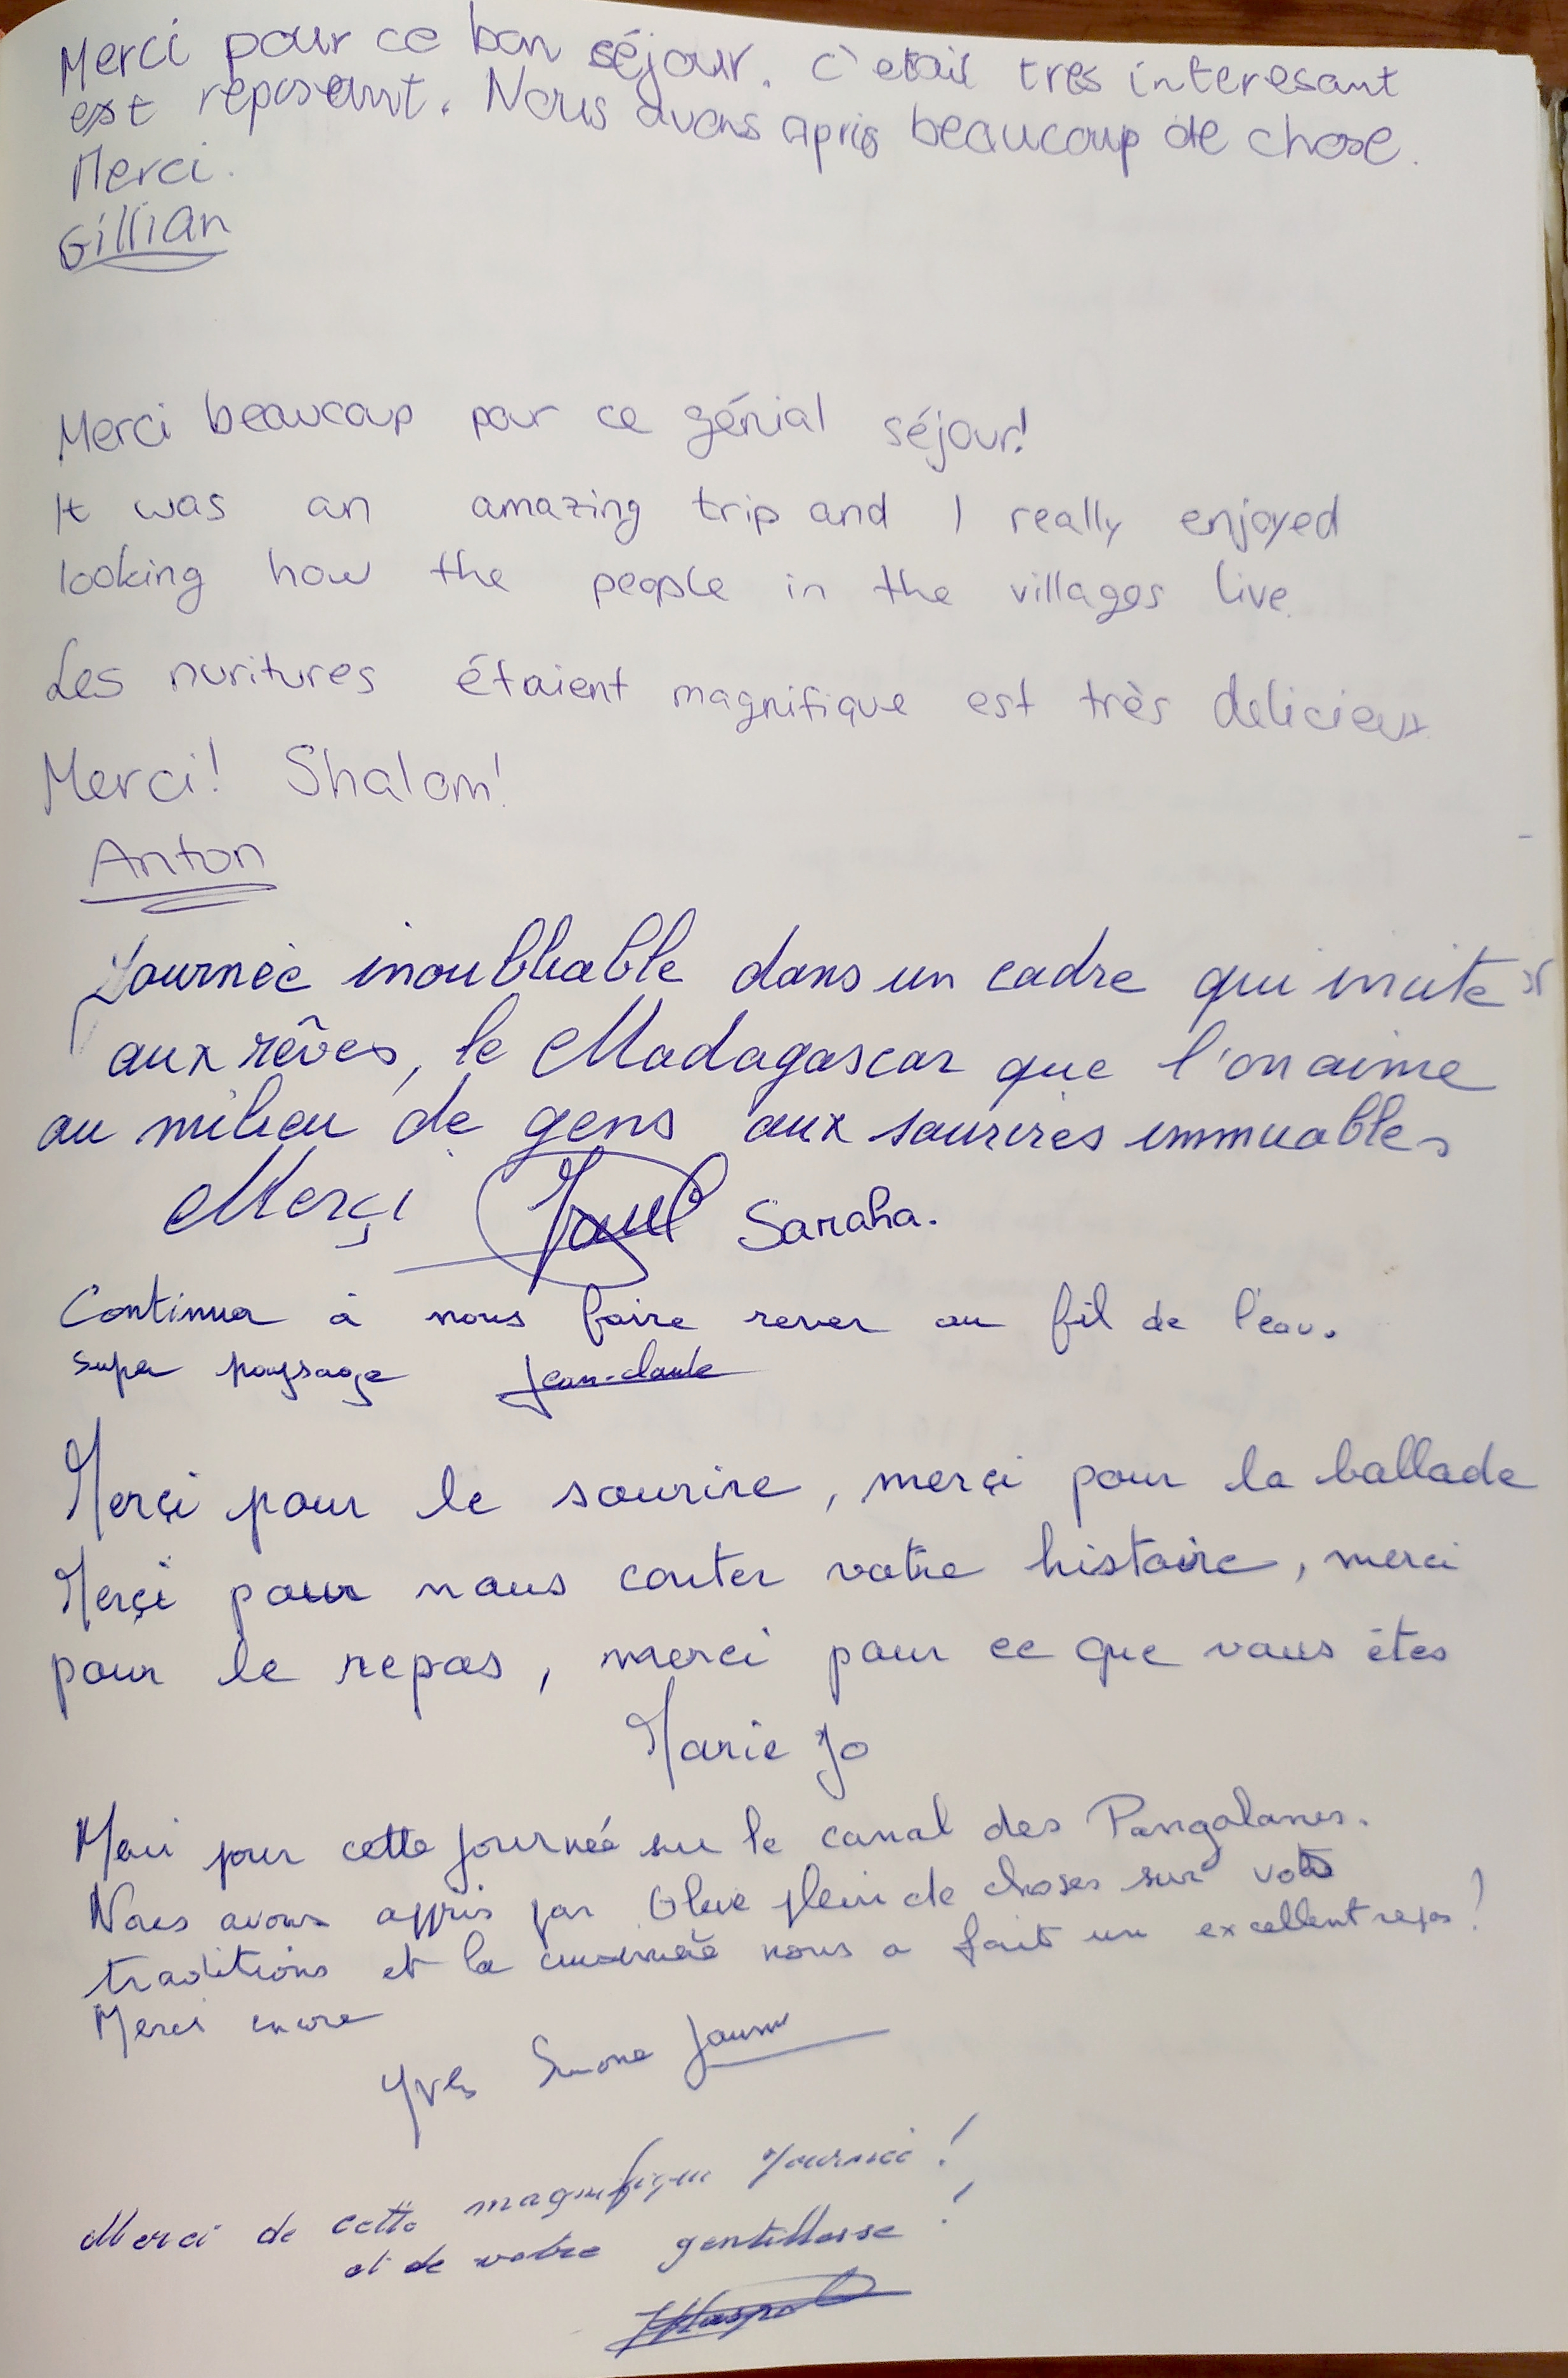 Merci pour ce bon séjour. c'etait tres interesant
est reposant. Nous avons apris beaucoup de chose.
Merci.
Gillian
Merci beaucoup pour ce génial séjour!
It was an amazing trip and I really enjoyed
looking how the people in the villages live.
Les nuritures étaient magnifique est très delicieux.
Merci! Shalom!
Anton
Journée inoubliable dans un cadre qui invite
aux rêves, le Madagascar que l'on aime
au milieu de gens aux sourires immuables
Merçi Saraha.
Continuer à nous faire rever au fil de l'eau.
super paysage Jean-claude
Merçi pour le sourire, merçi pour la ballade
Merçi pour nous conter votre histoire, merci
pour le repas, merci pour ce que vous êtes
Marie Jo
Merci pour cette journée sur le canal des Pangalanes.
Nous avons appris par plein de choses sur votre
traditions et la nous a fait un excellent repas!
Merci encore
Yves Simone
Merci de cette magnifique journée!
et de votre gentillesse!